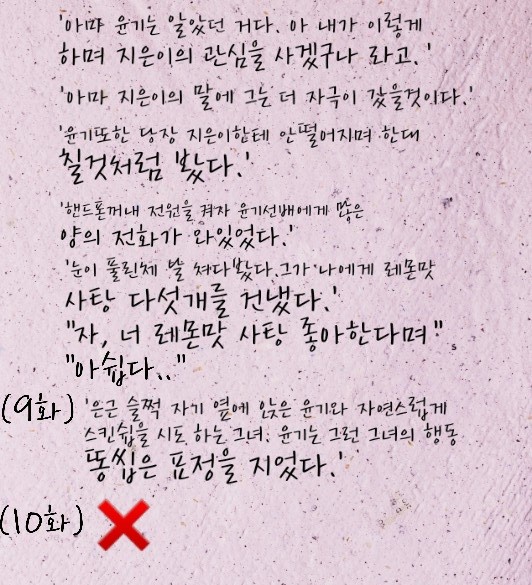 '아마 윤기는 알았던 거다. 아 내가 이렇게
하며 지은이의 관심을 사겠구나 라고.'
'아마 지은이의 말에 그는 더 자극이 갔을것이다.'
'윤기또한 당장 지은이한테 안떨어지며 한대
칠것처럼 봤다.'
'핸드폰꺼내 전원을 켜자 윤기선배에게 많은
양의 전화가 와있었다.'
'눈이 풀린체 날 쳐다봤다.그가 나에게 레몬맛
사탕 다섯개를 건냈다.'
"자, 너 레몬맛 사탕 좋아한다며"
"아쉽다.."
(9화) '은근 슬쩍 자기 옆에 앉은 윤기와 자연스럽게
스킨쉽을 시도 하는 그녀. 윤기는 그런 그녀의 행동
똥씹은 표정을 지었다.'
(10화)